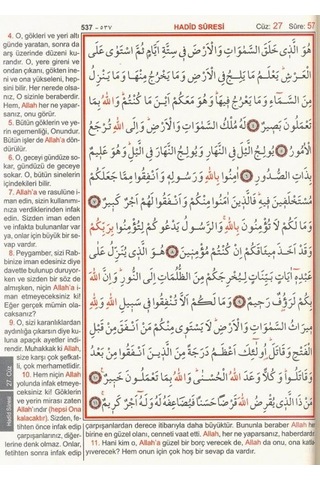 537 - ٥٣٧ HADÎD SÛRESİ Cüz: 27 Sûre: 57
4. O, gökleri ve yeri altı
günde yaratan, sonra da
arş üzerinde düzeni ku-
randır. O, yere gireni ve
ondan çıkanı, gökten ine-
ni ve ona yükseleni, hep-
sini bilir. Her nerede olsa-
nız, O sizinle beraberdir.
Hem, Allah her ne yapar-
sanız, onu görür.
5. Bütün göklerin ve ye-
rin egemenliği, Onundur.
Bütün işler de Allah'a dön-
dürülür.
6. O, geceyi gündüze so-
kar, gündüzü de geceye
sokar. O, bütün sinelerin
içindekileri bilir.
7. Allah'a ve rasulüne i-
man edin, sizin kullanımı-
nıza verdiklerinden infak
edin. Sizden iman eden
ve infakta bulunanlar var
ya, onlar için büyük bir se-
vap vardır.
8. Peygamber, sizi Rab-
binize iman edesiniz diye
davette bulunup duruyor-
ken ve sizden bir söz de
almışken, niçin Allah'a i-
man etmeyeceksiniz ki!
Eğer gerçek mümin ola-
caksanız?
9. O, sizi karanlıklardan
aydınlığa çıkarsın diye ku-
luna apaçık ayetler indi-
rendir. Muhakkak ki Allah,
size karşı çok şefkat-
li, çok merhametlidir.
10. Hem niçin Allah
yolunda infak etmeye-
ceksiniz ki! Göklerin
ve yerin mirası zaten
Allah'ındır (hepsi Ona
kalacaktır). Sizden, fe-
tihten önce infak edip
çarpışanlarınız, diğer-
lerine denk olmaz. Onlar,
fetihten sonra infak edip
27. Cüz
Hadîd Sûresi
هُوَ الَّذِي خَلَقَ السَّمٰوَاتِ وَالْاَرْضَ فِي سِتَّةِ اَيَّامٍ ثُمَّ اسْتَوٰى عَلَى
الْعَرْشِ يَعْلَمُ مَا يَلِجُ فِي الْاَرْضِ وَمَا يَخْرُجُ مِنْهَا وَمَا يَنْزِلُ
مِنَ السَّمَاءِ وَمَا يَعْرُجُ فِيهَا وَهُوَ مَعَكُمْ اَيْنَ مَا كُنْتُمْ وَاللّٰهُ بِمَا
تَعْمَلُونَ بَصِيرٌ ﴿٤﴾ لَهُ مُلْكُ السَّمٰوَاتِ وَالْاَرْضِ وَاِلَى اللّٰهِ تُرْجَعُ
الْاُمُورُ ﴿٥﴾ يُولِجُ الَّيْلَ فِي النَّهَارِ وَيُولِجُ النَّهَارَ فِي الَّيْلِ وَهُوَ عَلِيمٌ
بِذَاتِ الصُّدُورِ ﴿٦﴾ اٰمِنُوا بِاللّٰهِ وَرَسُولِهِ وَاَنْفِقُوا مِمَّا جَعَلَكُمْ
مُسْتَخْلَفِينَ فِيهِ فَالَّذِينَ اٰمَنُوا مِنْكُمْ وَاَنْفَقُوا لَهُمْ اَجْرٌ كَبِيرٌ ﴿٧﴾
وَمَا لَكُمْ لَا تُؤْمِنُونَ بِاللّٰهِ وَالرَّسُولُ يَدْعُوكُمْ لِتُؤْمِنُوا بِرَبِّكُمْ
وَقَدْ اَخَذَ مِيثَاقَكُمْ اِنْ كُنْتُمْ مُؤْمِنِينَ ﴿٨﴾ هُوَ الَّذِي يُنَزِّلُ عَلٰى
عَبْدِهِ اٰيَاتٍ بَيِّنَاتٍ لِيُخْرِجَكُمْ مِنَ الظُّلُمَاتِ اِلَى النُّورِ وَاِنَّ اللّٰهَ
بِكُمْ لَرَؤُفٌ رَحِيمٌ ﴿٩﴾ وَمَا لَكُمْ اَلَّا تُنْفِقُوا فِي سَبِيلِ اللّٰهِ وَلِلّٰهِ
مِيرَاثُ السَّمٰوَاتِ وَالْاَرْضِ لَا يَسْتَوِي مِنْكُمْ مَنْ اَنْفَقَ مِنْ قَبْلِ
الْفَتْحِ وَقَاتَلَ اُولٰئِكَ اَعْظَمُ دَرَجَةً مِنَ الَّذِينَ اَنْفَقُوا مِنْ بَعْدُ
وَقَاتَلُوا وَكُلًّا وَعَدَ اللّٰهُ الْحُسْنٰى وَاللّٰهُ بِمَا تَعْمَلُونَ خَبِيرٌ ﴿١٠﴾
مَنْ ذَا الَّذِي يُقْرِضُ اللّٰهَ قَرْضًا حَسَنًا فَيُضَاعِفَهُ لَهُ وَلَهُ اَجْرٌ كَرِيمٌ ﴿١١﴾
çarpışanlardan derece itibarıyla daha büyüktür. Bununla beraber Allah her
birine en güzel olanı, cenneti vaat etti. Allah, her ne yaparsanız, haberdardır.
11. Hani kim o, Allah'a güzel bir borç verecek de, Allah da onu, ona katla
yıverecek? Hem onun için çok hoş bir sevap da vardır.